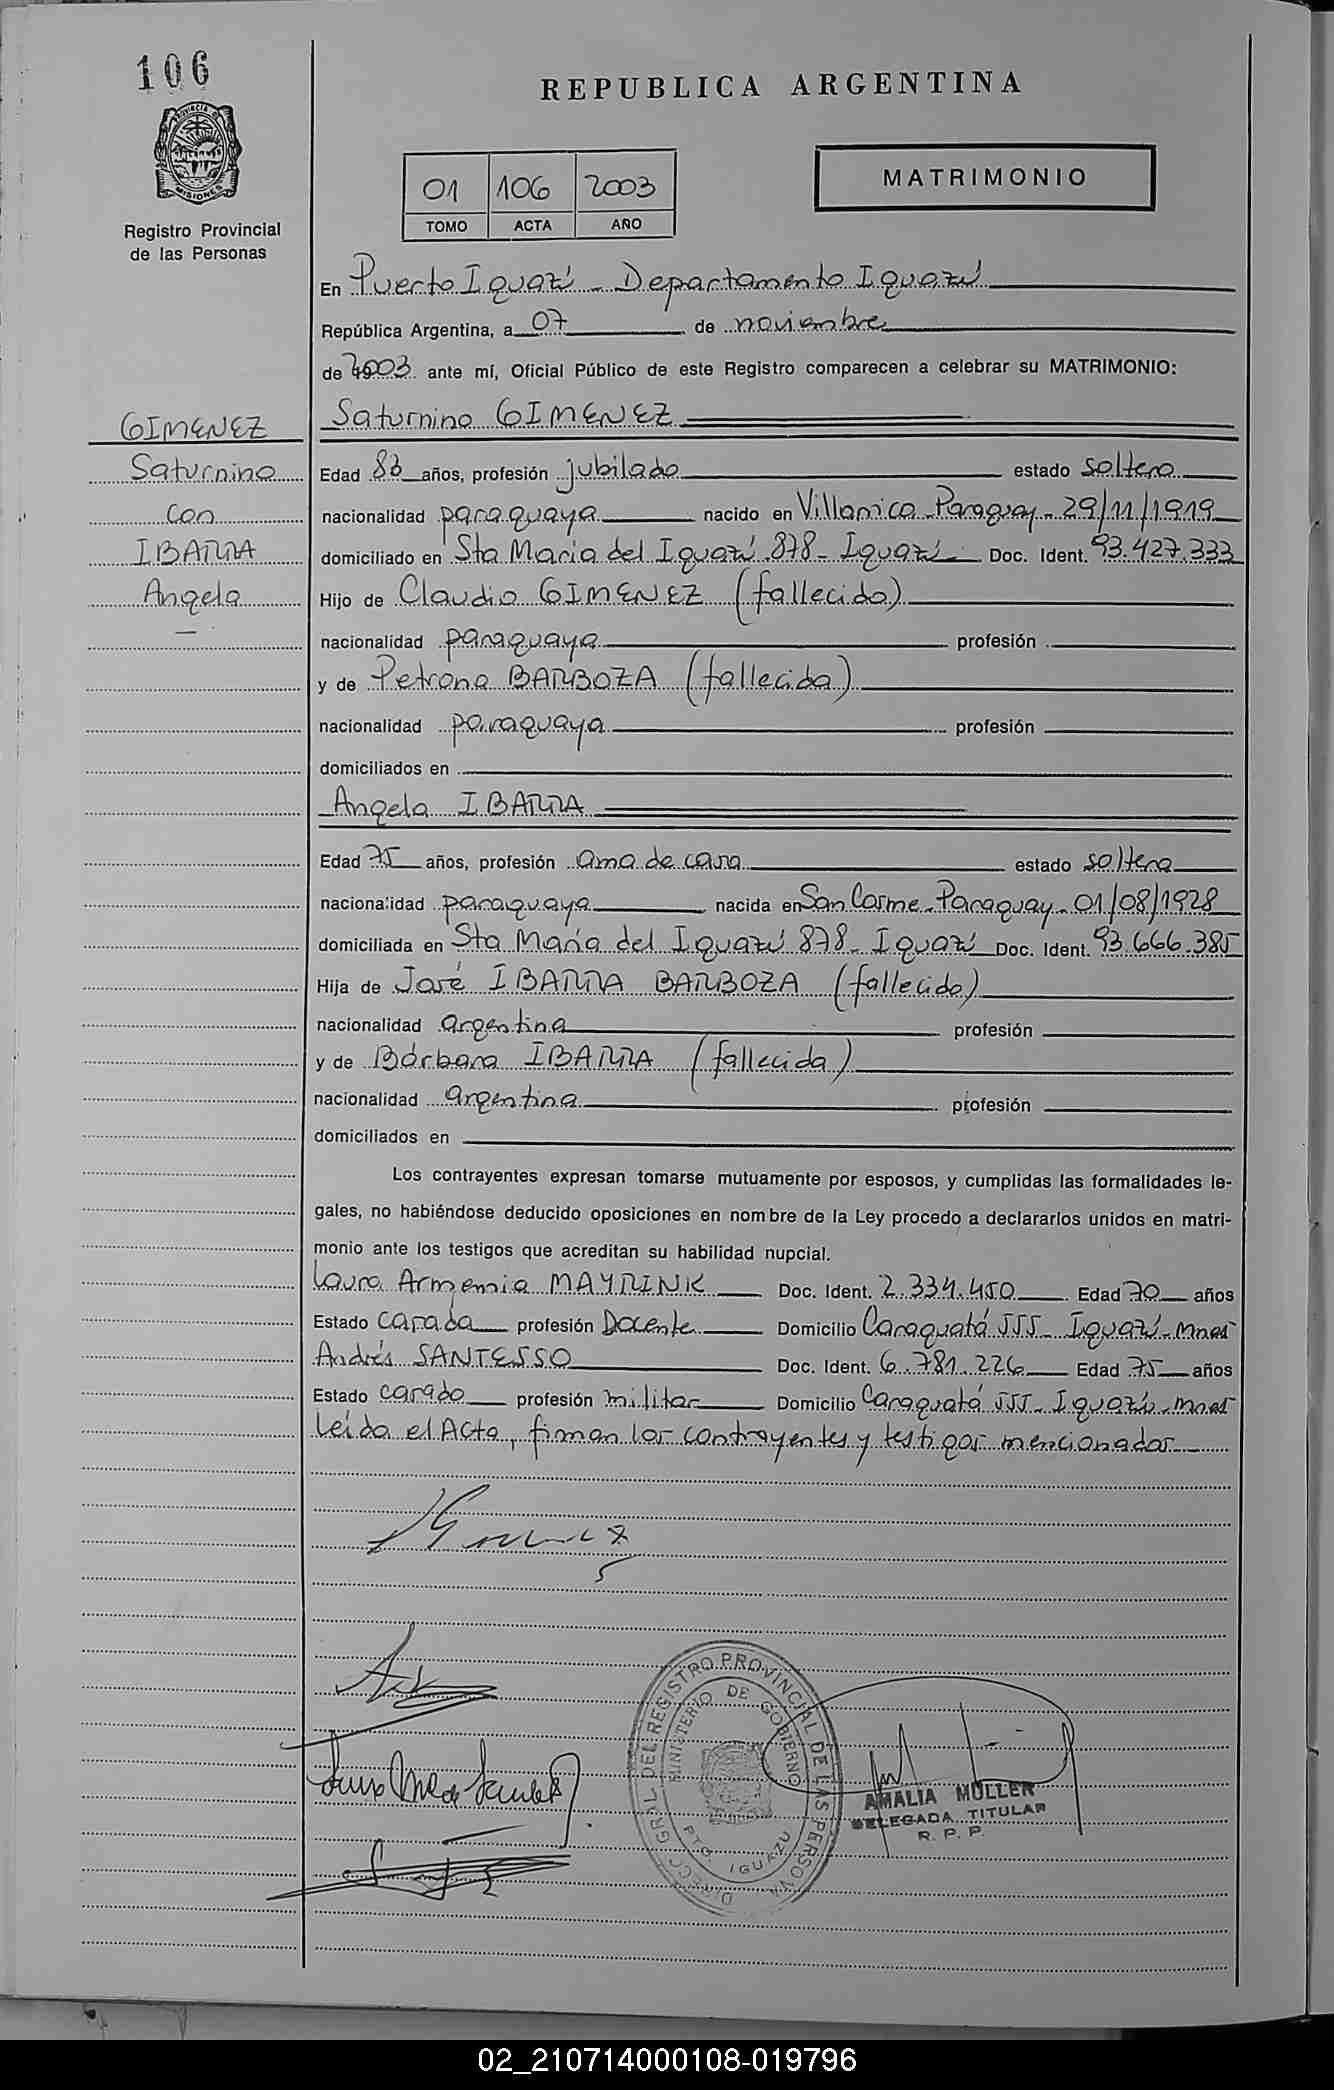 106
PROVINCIA DE
MISIONES
Registro Provincial
de las Personas
REPUBLICA ARGENTINA
01 106 2003
TOMO ACTA AÑO
MATRIMONIO
En Puerto Iguazú - Departamento Iguazú
República Argentina, a 07 de noviembre
de 2003 ante mí, Oficial Público de este Registro comparecen a celebrar su MATRIMONIO:
GIMENEZ
Saturnino
con
IBARRA
Angela
Saturnino GIMENEZ
Edad 83 años, profesión jubilado estado soltero
nacionalidad paraguaya nacido en Villarrica - Paraguay - 29/11/1919
domiciliado en Sta María del Iguazú 878 - Iguazú Doc. Ident. 93.427.333
Hijo de Claudio GIMENEZ (fallecido)
nacionalidad paraguaya profesión
y de Petrona BARBOZA (fallecida)
nacionalidad paraguaya profesión
domiciliados en
Angela IBARRA
Edad 75 años, profesión ama de casa estado soltera
nacionalidad paraguaya nacida en San Cosme - Paraguay - 01/08/1928
domiciliada en Sta María del Iguazú 878 - Iguazú Doc. Ident. 93.666.385
Hija de José IBARRA BARBOZA (fallecido)
nacionalidad argentina profesión
y de Bárbara IBARRA (fallecida)
nacionalidad argentina profesión
domiciliados en
Los contrayentes expresan tomarse mutuamente por esposos, y cumplidas las formalidades le-
gales, no habiéndose deducido oposiciones en nombre de la Ley procedo a declararlos unidos en matri-
monio ante los testigos que acreditan su habilidad nupcial.
Laura Armenia MAYRINK Doc. Ident. 2.334.450 Edad 70 años
Estado casada profesión Docente Domicilio Caraguatá 555 - Iguazú - Mnes
Andrés SANTESSO Doc. Ident. 6.781.226 Edad 75 años
Estado casado profesión militar Domicilio Caraguatá 555 - Iguazú - Mnes
Leída el Acta, firman los contrayentes y testigos mencionados
DIRECC. GRAL. DEL REGISTRO PROVINCIAL DE LAS PERSONAS
MINISTERIO DE GOBIERNO
PTO. IGUAZU
AMALIA MULLER
DELEGADA TITULAR
R. P. P.
02_210714000108-019796